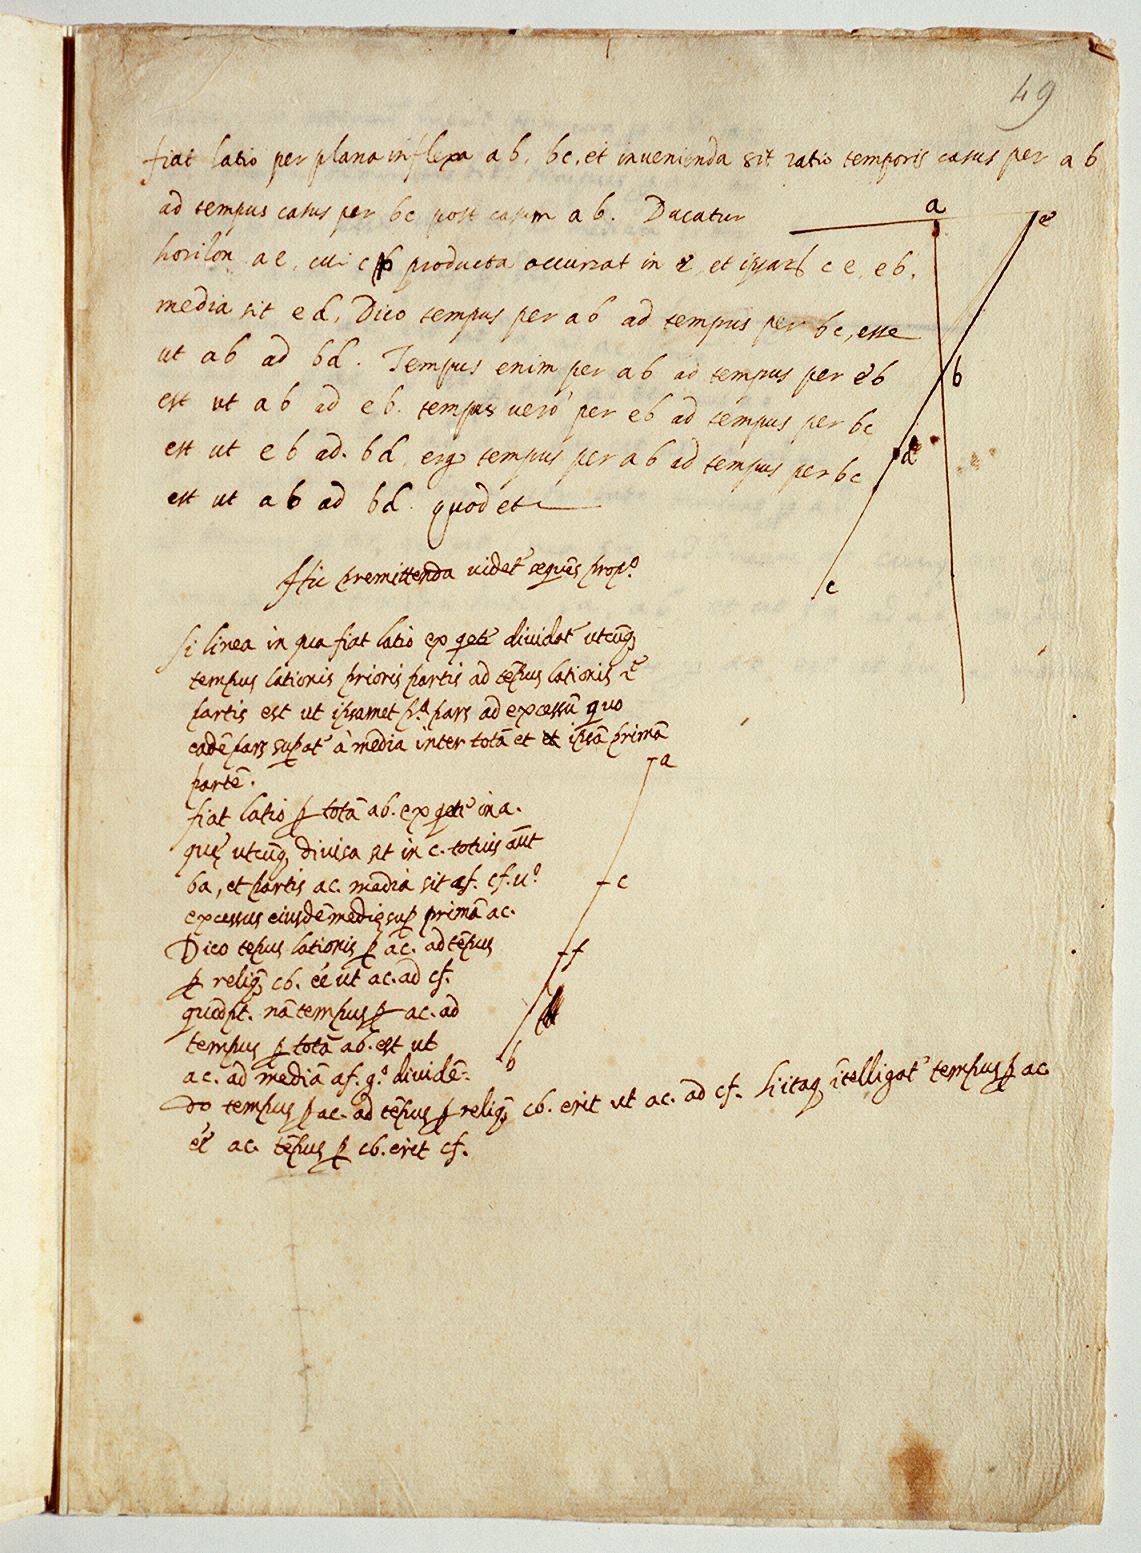 49
fiat latio per plana inflexa ab, bc, et invenienda sit ratio temporis casus per ab
ad tempus casus per bc post casum ab. Ducatur
horizon ae, cui cb producta occurrat in e, et ipsarum ce, eb,
media sit ed. Dico tempus per ab ad tempus per bc, esse
ut ab ad bd. Tempus enim per ab ad tempus per eb
est ut ab ad eb. tempus vero per eb ad tempus per bc
est ut eb ad. bd. ergo tempus per ab ad tempus per bc
est ut ab ad bd. quod et
a
e
b
d
c
Hic premittenda videt̃ sequẽs prop.º
Si linea in qua fiat latio ex q̃ete dividat̃ utcũq̃
tempus lationis prioris partis ad tẽpus lationis 2ẽ
partis est ut ipsamet p.ª pars ad excessũ quo
eadẽ pars suꝑat̃ à media inter totã et ipsã primã
partẽ.
fiat latio ꝑ totã ab. ex q̃ete in a.
que utcũq̃ divisa sit in c. totius aũt
ba, et partis ac. media sit af. cf. v.º
excessus eiusdẽ medie suꝑ primã ac.
Dico tẽpus lationis ꝑ ac. ad tẽpus
ꝑ reliq̃ cb. ẽe ut ac. ad cf.
quod pt. nã tempus ꝑ ac. ad
tempus ꝑ totã ab. est ut
ac. ad mediã af. g.º dividẽ-
do tempus ꝑ ac. ad tẽpus ꝑ reliq̃ cb. erit ut ac. ad cf. Si itaq̃ ĩtelligat̃ tempus ꝑ ac
ẽe ac. tẽpus ꝑ cb. erit cf.
a
c
f
b